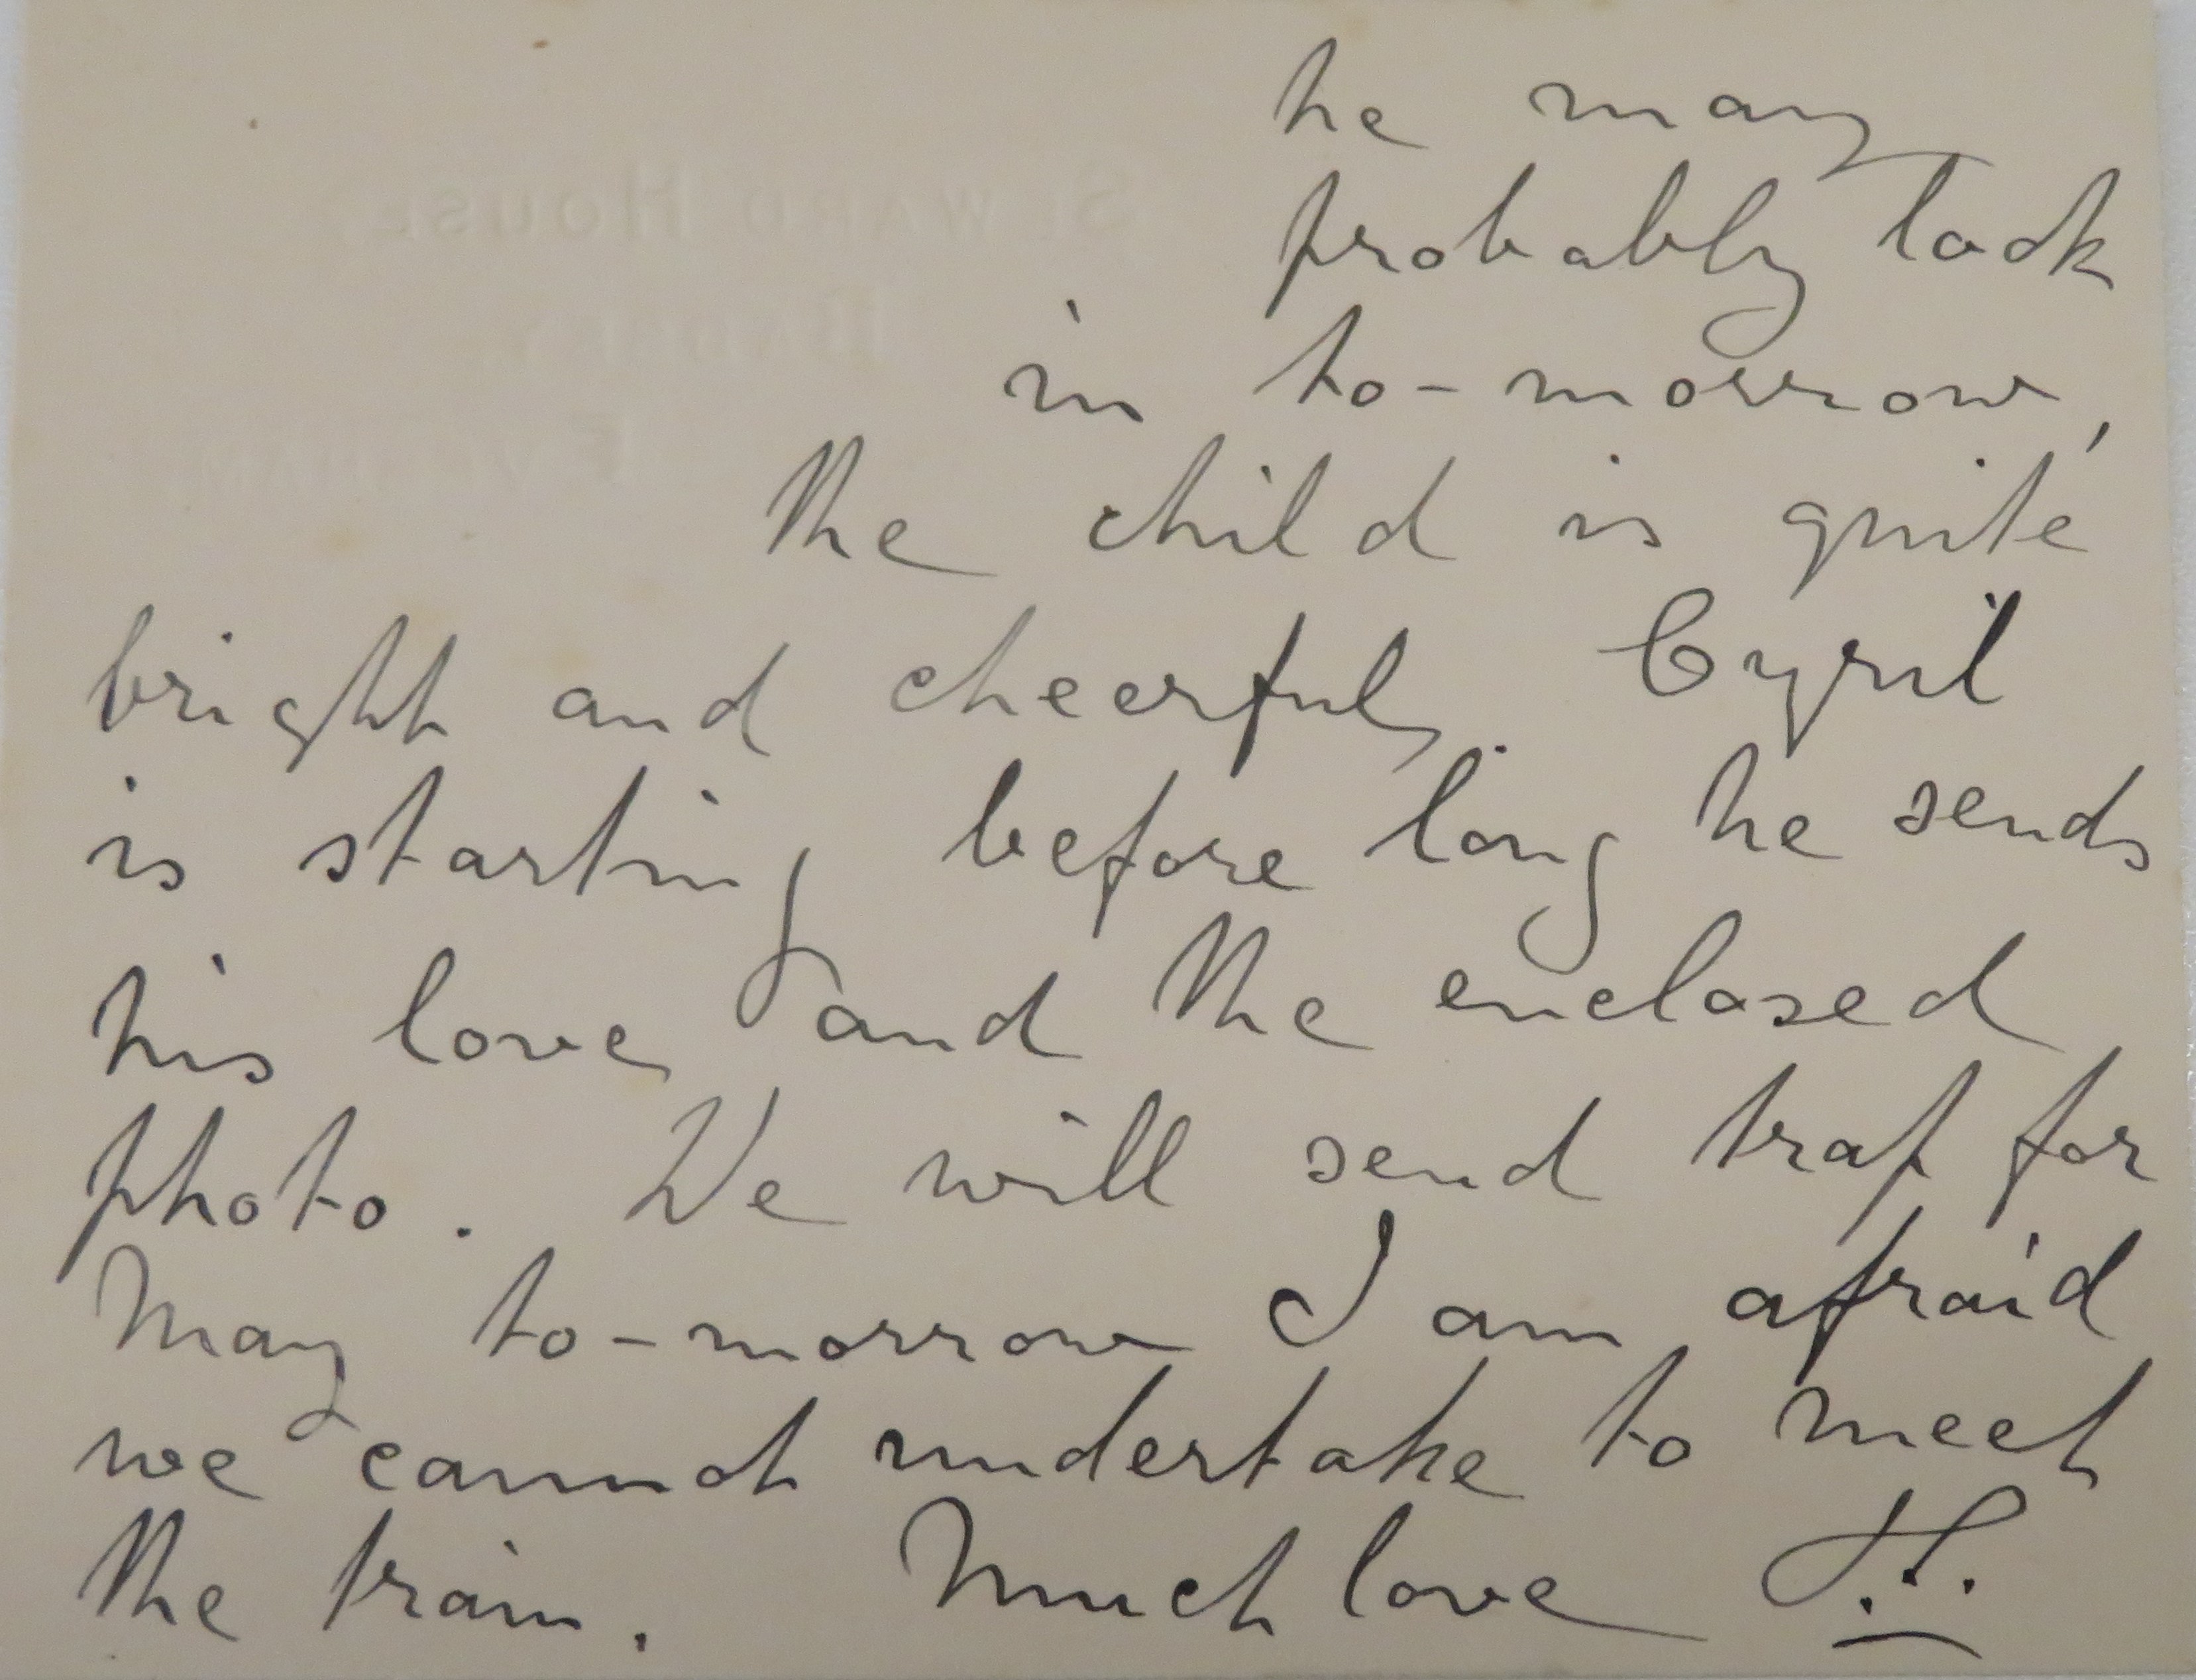 he may
probably look
in to-morrow,
The child is quite
bright and cheerful. Cyril
is starting before long he sends
his love and the enclosed
photo. We will send trap for
May to-morrow I am afraid
we cannot undertake to meet
the train. Much love H.
SEWARD HOUSE,
BADSEY,
EVESHAM